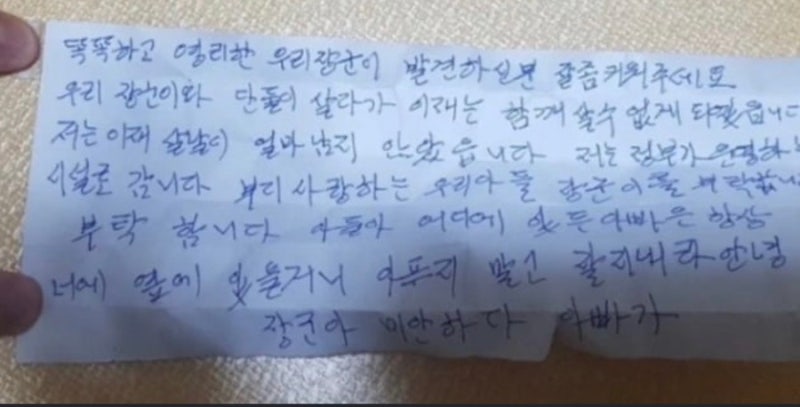 똑똑하고 영리한 우리장군이 발견하심면 잘좀키워주세요
우리 장군이와 단둘이 살다가 이재는 함깨 살수 없게 되였읍니다
저는이재 살날이 얼마남지 안았읍니다 저는정부가운영하는
시설로 갑니다 부디사랑하는 우리아들 장군이를 부탁합니
부탁 합니다 아들아 어디에 있든아빠은 항상
너에 옆에 있을거니 아푸지 말고 잘지내라 안녕
장군아 미안하다 아빠가